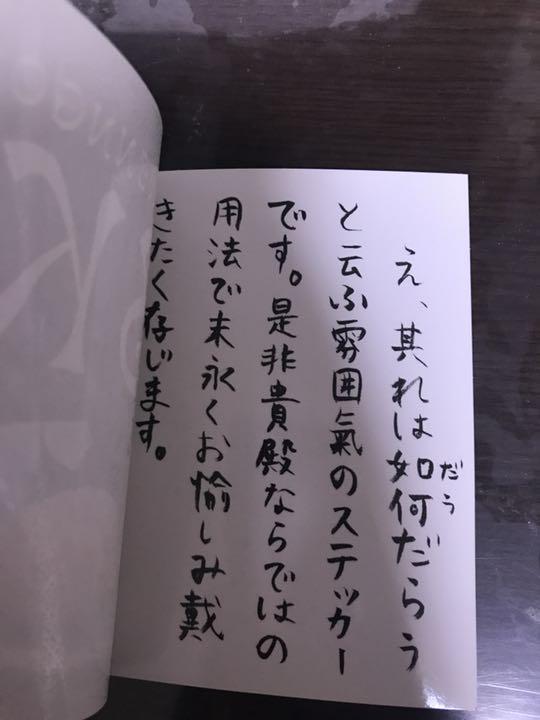 え、其れは如何だらう
だう
と云ふ雰囲氣のステッカー
です。是非貴殿ならではの
用法で末永くお愉しみ戴
きたく存じます。